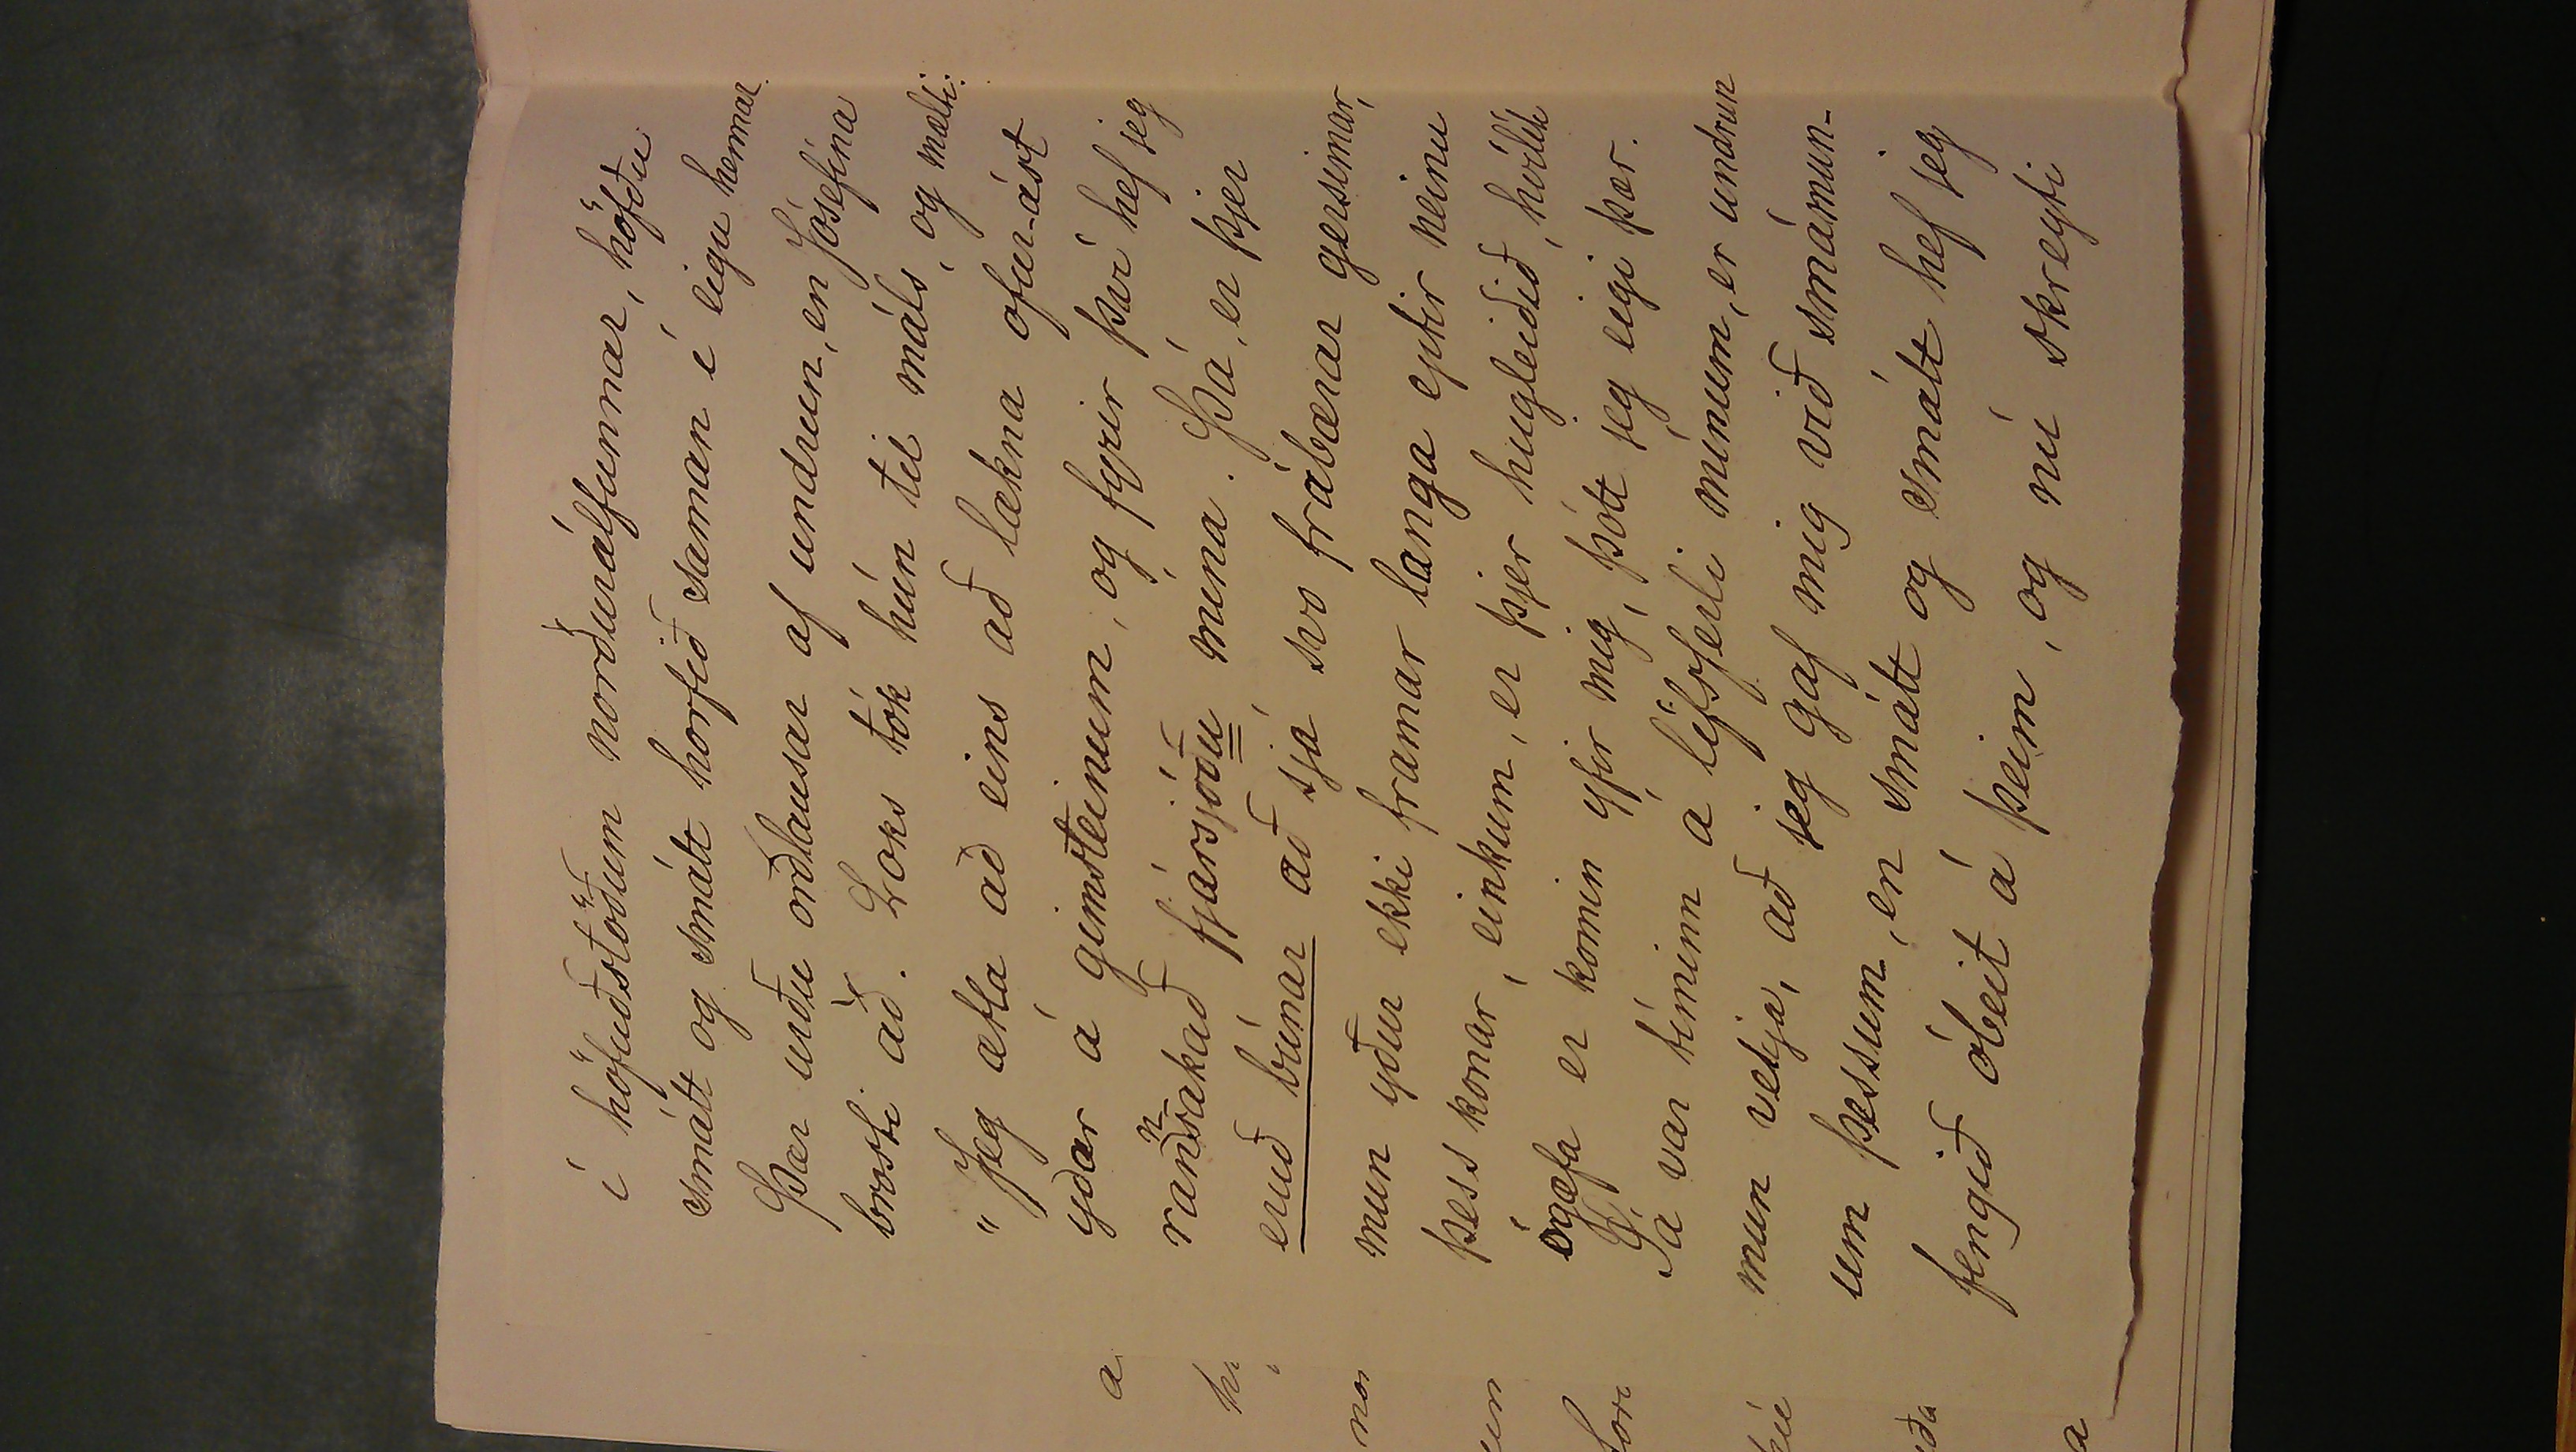 í höfuðstöðum norðurálfunnar, höfðu
smátt og smátt horfið saman í eigu hennar.
Þær urðu orðlausar af undrun, en Jósefína
brosti að. Loks tók hún til máls, og mælti:
"Jeg ætla að eins að lækna ofur-ást
yðar á gimsteinum, og fyrir því hef jeg
rannsakað fjársjóðu mína. Þá, er þjer
eruð búnar að sjá svo frábærar gersimar,
mun yður ekki framar langa eptir neinu
þess konar, einkum, er þjer hugleiðið, hvílík
ógæfa er komin yfir mig, þótt jeg eigi þær.
Sá var tíminn á lífsferli mínum, er undrun
mun vekja, að jeg gaf mig við smámun-
um þessum, en smátt og smátt hef jeg
fengið óbeit á þeim, og nú skreyti